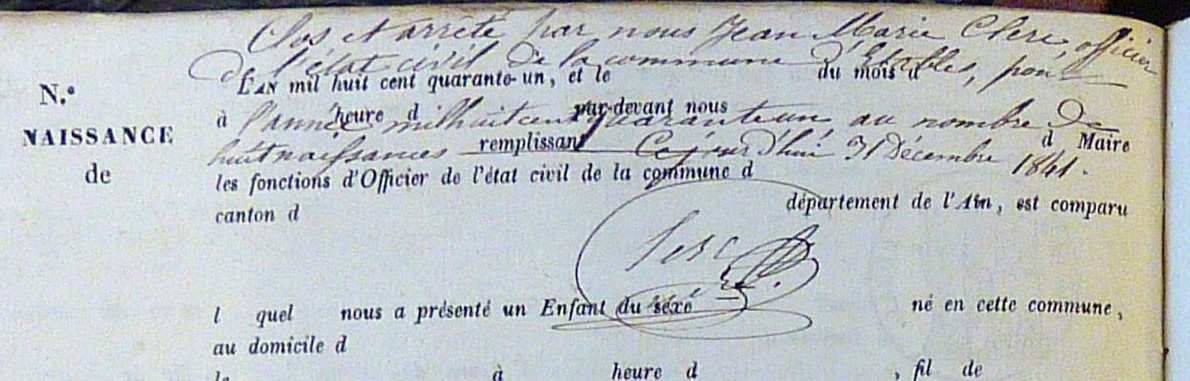 Clos et arrêté par nous Jean Marie Clerc, officier
de l'état civil de la commune d'Etables, pour
L'AN mil huit cent quarante-un, et le du mois d
N.°
à heure d par-devant nous
l'année mil huit cent quarante un au nombre de
NAISSANCE
d Maire
huit naissances remplissant Ce jour d'hui 31 Décembre 1841.
de
les fonctions d'Officier de l'état civil de la commune d
canton d département de l'Ain, est comparu
Clerc
l quel nous a présenté un Enfant du sexe né en cette commune,
au domicile d
le à heure d , fil de